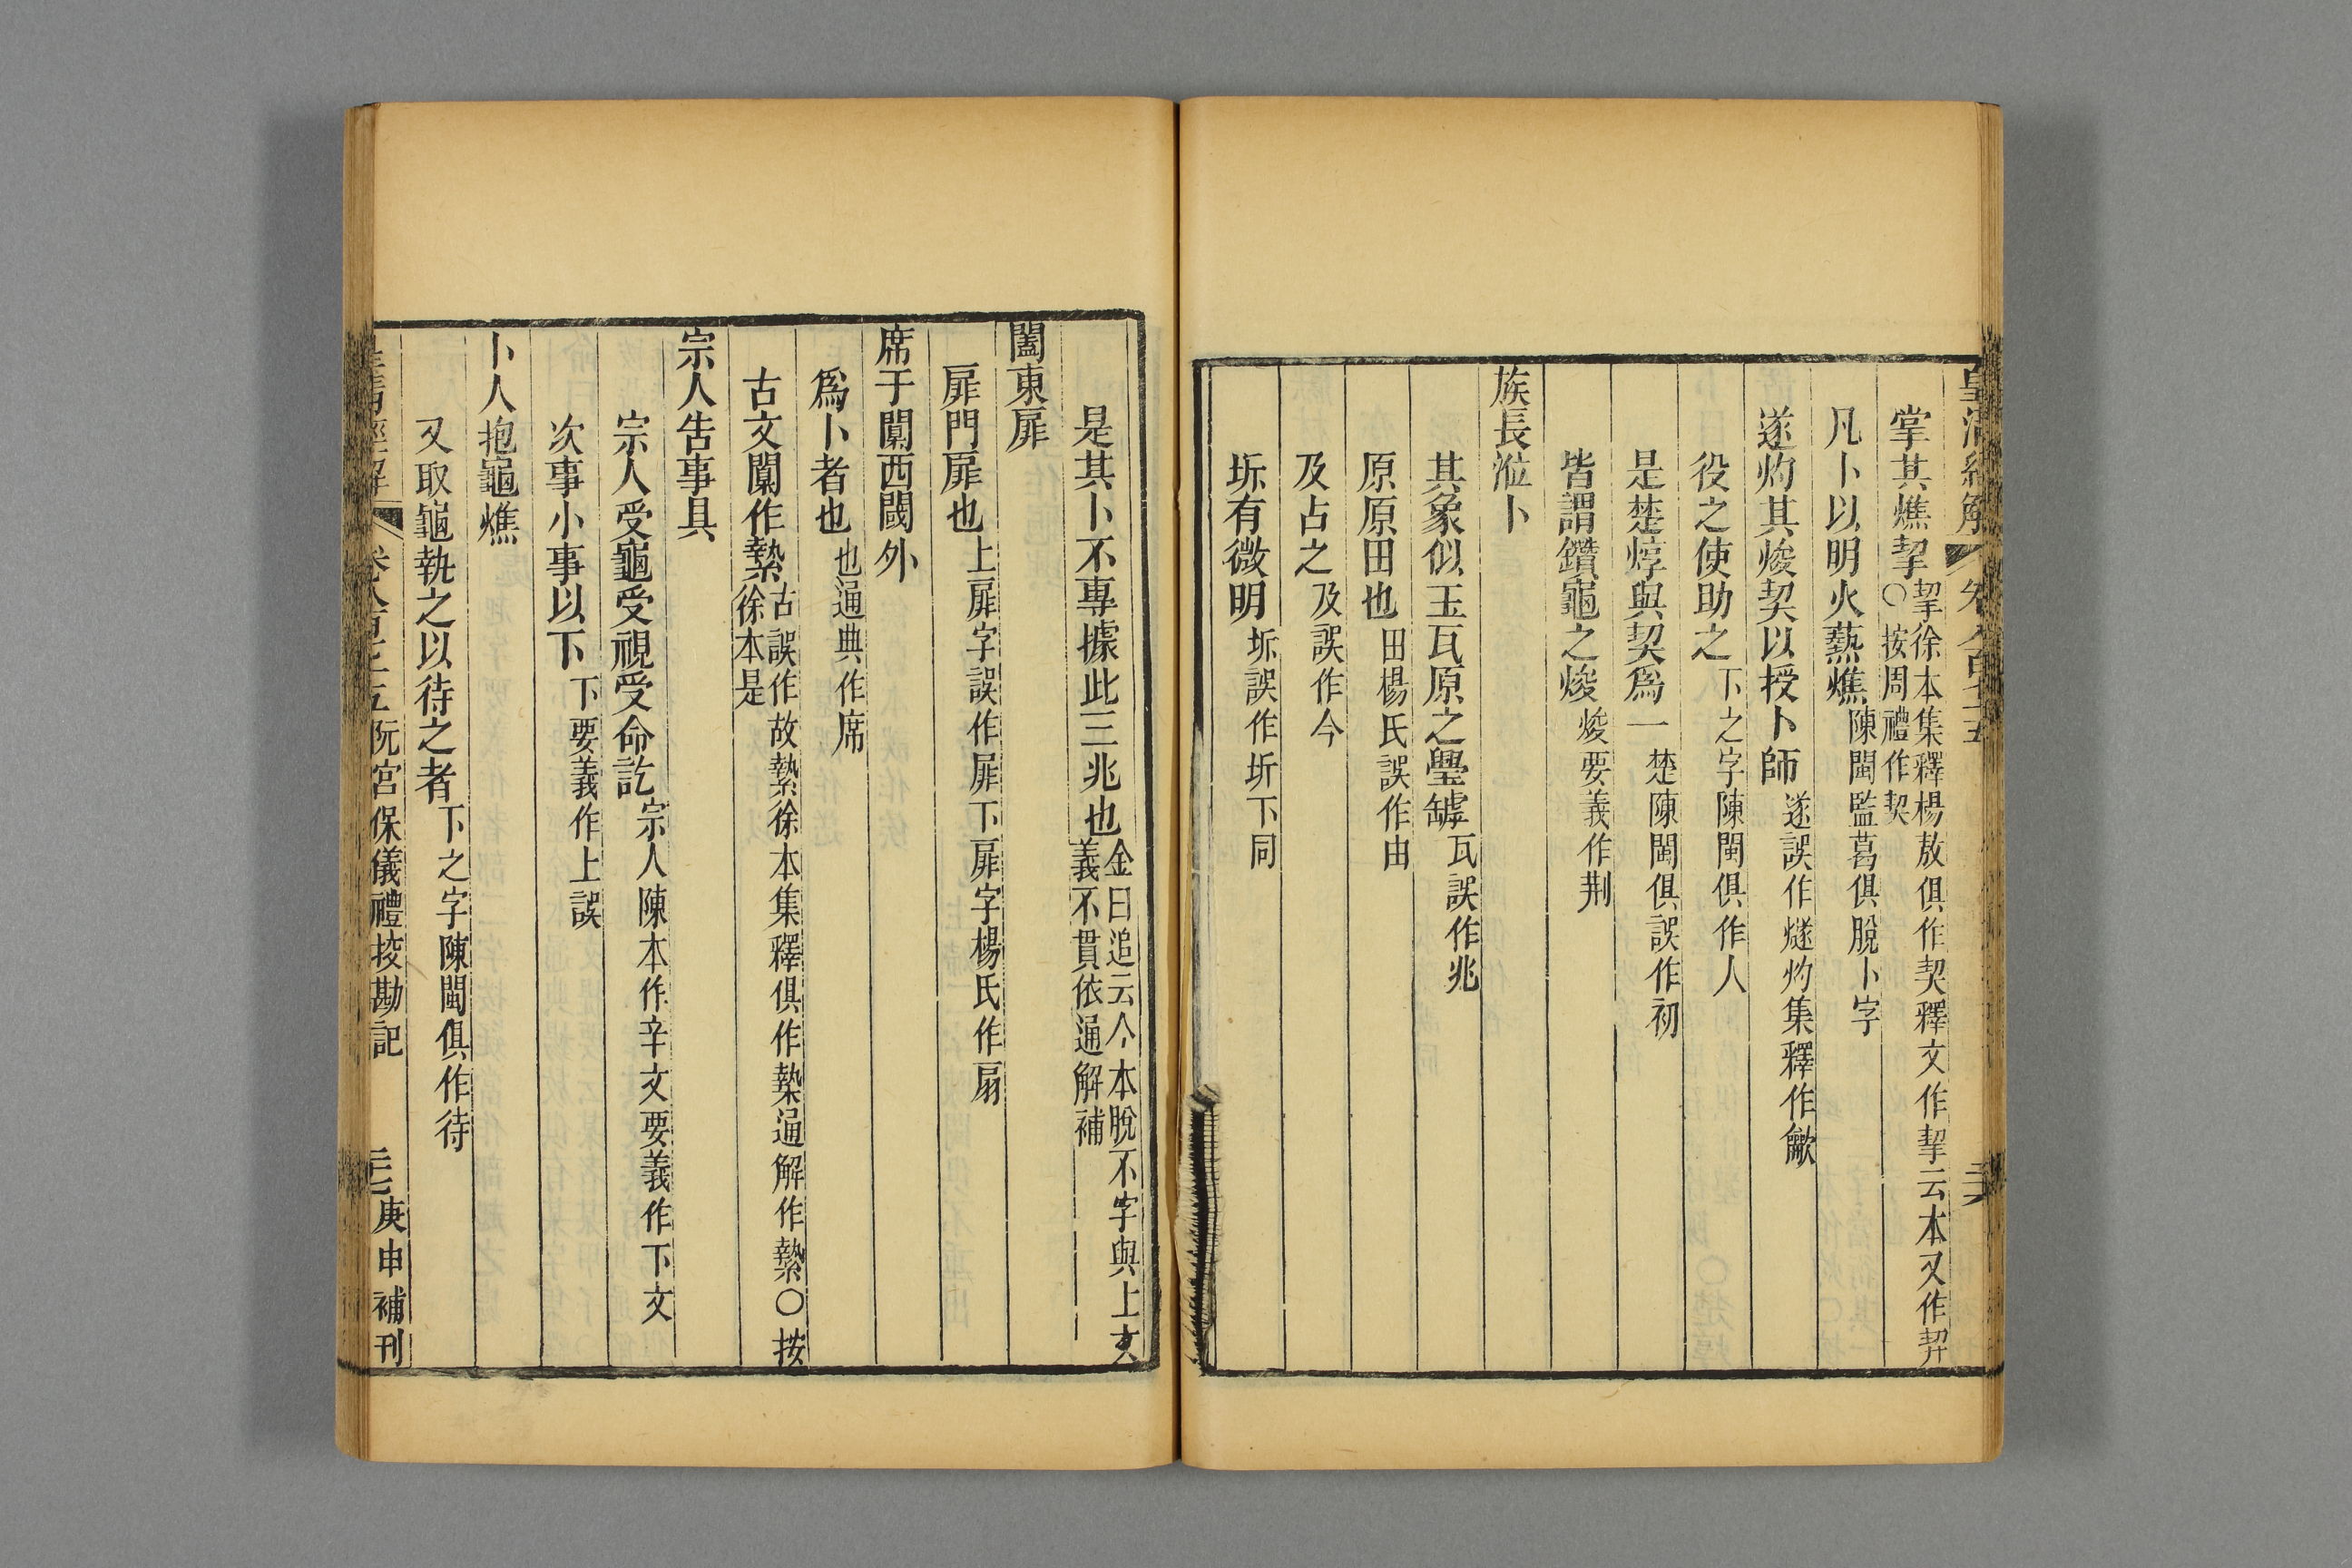 皇清經解 卷八百七十五
掌其燋挈挈徐本集釋楊敖俱作契釋文作挈云本又作契○按周禮作契
凡卜以明火爇燋陳閩監葛俱脫卜字
遂灼其焌契以授卜師遂誤作燧灼集釋作歗
役之使助之下之字陳閩俱作人
是楚焞與契爲一楚陳閩俱誤作初
皆謂鑽龜之焌焌要義作荆
族長涖卜
其象似玉瓦原之璺罅瓦誤作兆
原原田也田楊氏誤作由
及占之及誤作今
坼有微明坼誤作圻下同
是其卜不專據此三兆也金曰追云今本脫不字與上文義不貫依通解補
闔東扉
扉門扉也上扉字誤作屝下扉字楊氏作扇
席于闑西閾外
爲卜者也也通典作席
古文闑作槷古誤作故槷徐本集釋俱作槷通解作縶○按徐本是
宗人告事具
宗人受龜受視受命訖宗人陳本作辛文要義作下文
次事小事以下下要義作上誤
卜人抱龜燋
又取龜執之以待之者下之字陳閩俱作待
卷八百七十五阮宮保儀禮挍勘記 庚申補刊